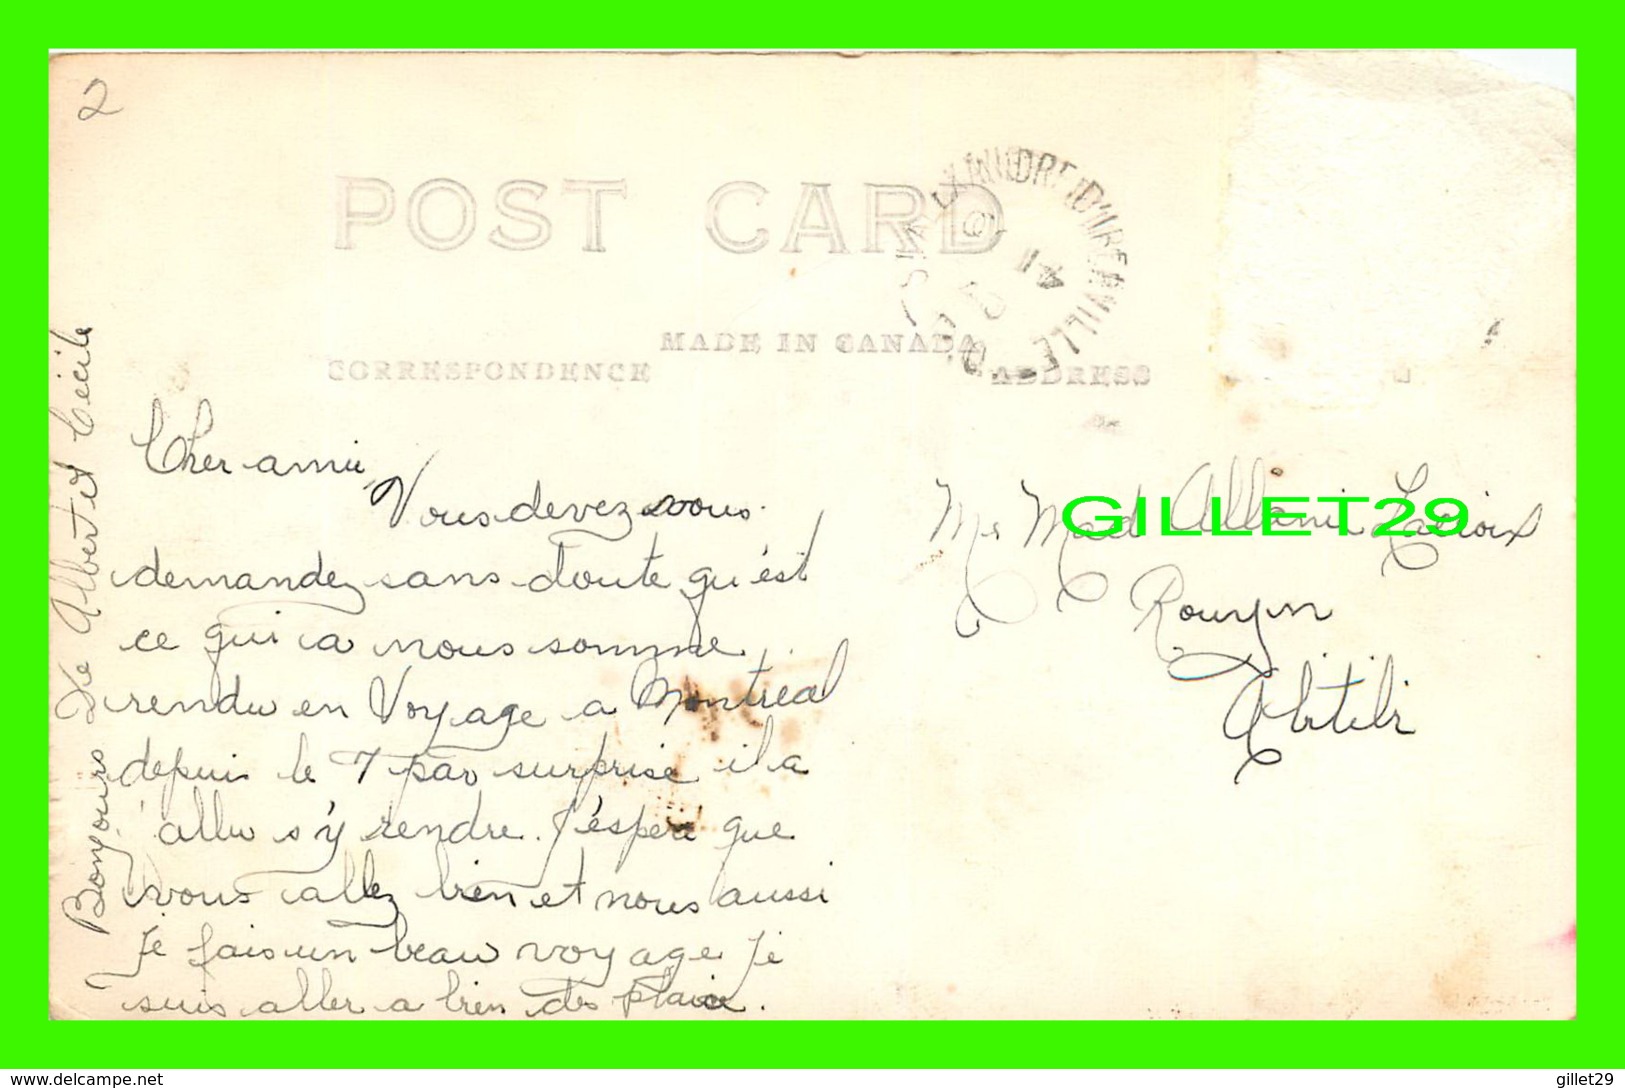 2
POST CARD
MADE IN CANADA
CORRESPONDENCE
ADDRESS
41
Cher amie
Vous devez vous
demandez sans doute qu'est
ce qui a nous somme
rendu en Voyage a Montréal
depuis le 7 par surprise il a
allu s'y rendre. J'éspère que
vous allez bien et nous aussi
Je fais un beau voyage Je
suis aller a bien des place.
Bonjours De Albert et Cécile
Mr Mad Lacroix
Rouyn
Abitibi
GILLET29
delcampe.net
gillet29